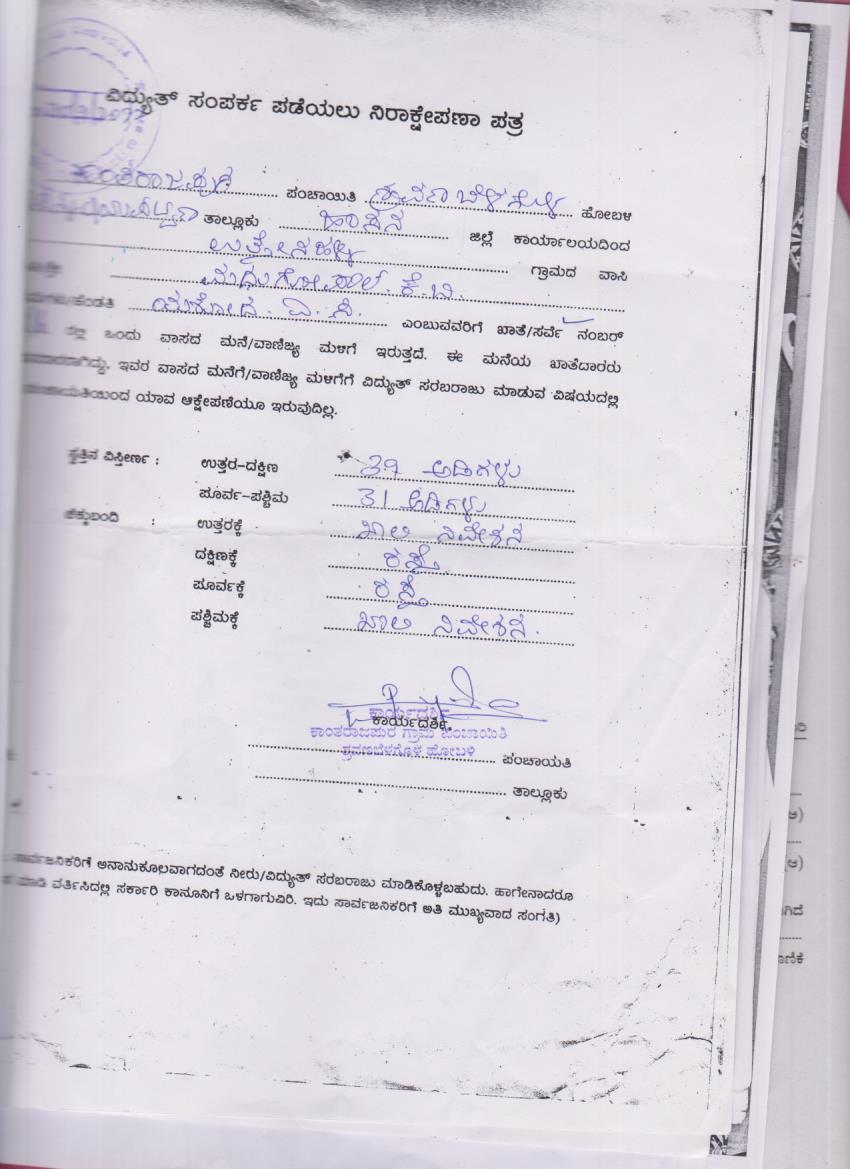 ವಿದ್ಯುತ್ ಸಂಪರ್ಕ ಪಡೆಯಲು ನಿರಾಕ್ಷೇಪಣಾ ಪತ್ರ
ಕಾಂತರಾಜಪುರ ಪಂಚಾಯಿತಿ ಶ್ರವಣಬೆಳಗೊಳ ಹೋಬಳಿ
ತಾಲ್ಲೂಕು ಹಾಸನ ಜಿಲ್ಲೆ ಕಾರ್ಯಾಲಯದಿಂದ
ಗ್ರಾಮದ ವಾಸಿ
ಮಧುಗೋಪಾಲ್. ಕೆ.ಬಿ.
ಯಶೋದ. ವಿ. ಸಿ. ಎಂಬುವವರಿಗೆ ಖಾತೆ/ಸರ್ವೆ ನಂಬರ್
ರಲ್ಲಿ ಒಂದು ವಾಸದ ಮನೆ/ವಾಣಿಜ್ಯ ಮಳಿಗೆ ಇರುತ್ತದೆ. ಈ ಮನೆಯ ಖಾತೆದಾರರು
ಇವರ ವಾಸದ ಮನೆಗೆ/ವಾಣಿಜ್ಯ ಮಳಿಗೆಗೆ ವಿದ್ಯುತ್ ಸರಬರಾಜು ಮಾಡುವ ವಿಷಯದಲ್ಲಿ
ಯಾವ ಆಕ್ಷೇಪಣೆಯೂ ಇರುವುದಿಲ್ಲ.
ಸ್ವತ್ತಿನ ವಿಸ್ತೀರ್ಣ : ಉತ್ತರ-ದಕ್ಷಿಣ 39 ಅಡಿಗಳು
ಪೂರ್ವ-ಪಶ್ಚಿಮ 31 ಅಡಿಗಳು
ಚೆಕ್ಕುಬಂದಿ : ಉತ್ತರಕ್ಕೆ ಖಾಲಿ ನಿವೇಶನ
ದಕ್ಷಿಣಕ್ಕೆ ರಸ್ತೆ
ಪೂರ್ವಕ್ಕೆ ರಸ್ತೆ
ಪಶ್ಚಿಮಕ್ಕೆ ಖಾಲಿ ನಿವೇಶನ.
ಕಾರ್ಯದರ್ಶಿ
ಕಾರ್ಯದರ್ಶಿ
ಕಾಂತರಾಜಪುರ ಗ್ರಾಮ ಪಂಚಾಯಿತಿ
ಶ್ರವಣಬೆಳಗೊಳ ಹೋಬಳಿ
ಪಂಚಾಯತಿ
ತಾಲ್ಲೂಕು
ಸಾರ್ವಜನಿಕರಿಗೆ ಅನಾನುಕೂಲವಾಗದಂತೆ ನೀರು/ವಿದ್ಯುತ್ ಸರಬರಾಜು ಮಾಡಿಕೊಳ್ಳಬಹುದು. ಹಾಗೇನಾದರೂ
ಮಾಡಿ ವರ್ತಿಸಿದಲ್ಲಿ ಸರ್ಕಾರಿ ಕಾನೂನಿಗೆ ಒಳಗಾಗುವಿರಿ. ಇದು ಸಾರ್ವಜನಿಕರಿಗೆ ಅತಿ ಮುಖ್ಯವಾದ ಸಂಗತಿ)